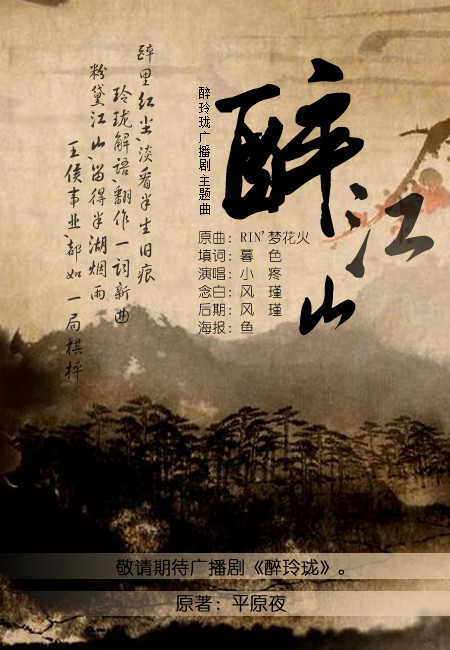 醉江山
醉玲珑广播剧主题曲
原曲：RIN'梦花火
填词：暮 色
演唱：小 疼
念白：风 瑾
后期：风 瑾
海报：鱼
醉里红尘、淡看半生旧痕
玲珑解语、翻作一词新曲
粉黛江山、留得半湖烟雨
王侯事业、都如一局棋枰
敬请期待广播剧《醉玲珑》。
原著：平原夜